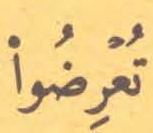 تُعْرِضُواْ